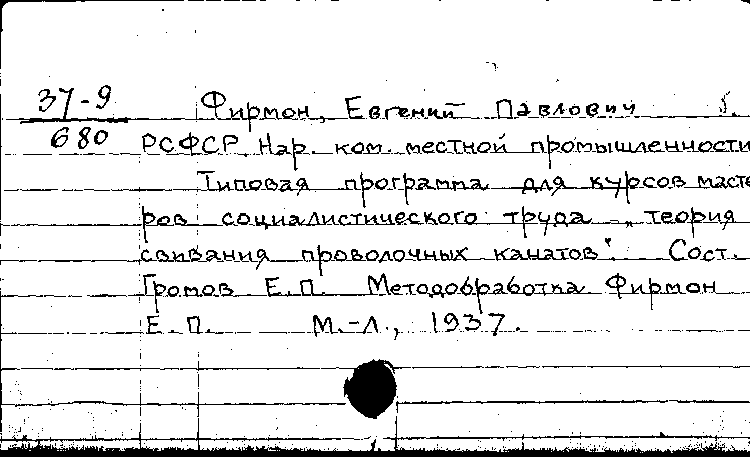 37-9 Фирмон, Евгений Павлович
680 РСФСР. Нар. ком. местной промышленности
Типовая программа для курсов масте
ров социалистического труда „теория
свивания проволочных канатов". Сост.
Громов Е.П. Методобработка Фирмон
Е.П. М.-Л., 1937.